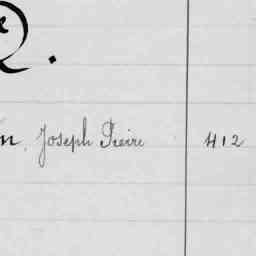 &.
n, Joseph Pierre 412